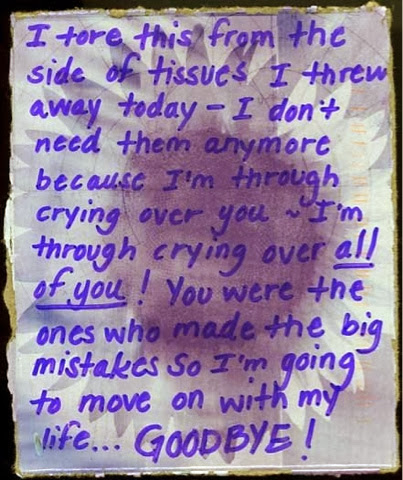 I tore this from the
side of tissues I threw
away today - I don't
need them anymore
because I'm through
crying over you ~ I'm
through crying over all
of you! You were the
ones who made the big
mistakes so I'm going
to move on with my
life... GOODBYE!